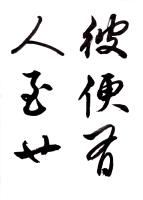 彼便有
人至廿